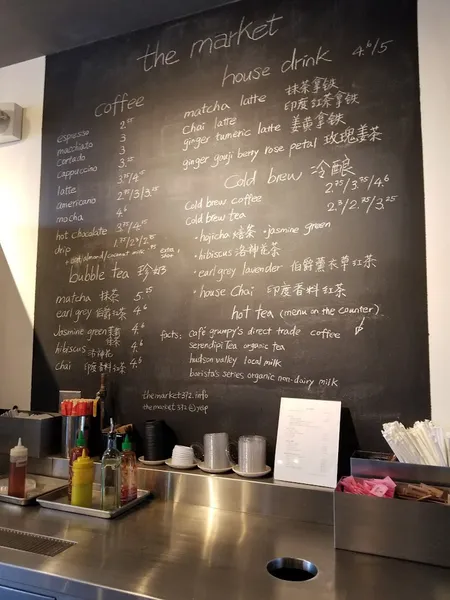 the market
coffee
espresso 2.75
macchiato 3
cortado 3
cappuccino 3.25
latte 3.75/4.5
americano 2.75/3/3.25
mocha 4.5
hot chocolate 3.75/4.75
drip 1.75/2.2/2.75
+ oat/almond/coconut milk extra
bubble tea
matcha 抹茶 5.25
earl grey 伯爵红茶 4.6
Jasmine green 4.6
hibiscus 洛神花 4.6
chai 印度香料红茶 4.6
house drink 4.6/5
matcha latte 抹茶拿铁
chai latte 印度红茶拿铁
ginger tumeric latte 姜黄拿铁
ginger gouji berry rose petal 玫瑰姜茶
Cold brew 冷酿
Cold brew coffee 2.75/3.75/4.6
Cold brew tea 2.3/2.75/3.25
• hojicha 焙茶 • jasmine green
• hibiscus 洛神花茶
• earl grey lavender 伯爵薰衣草红茶
• house Chai 印度香料红茶
hot tea (menu on the counter)
facts: café grumpy's direct trade coffee
serendipiTea organic tea
hudson valley local milk
barista's series organic non-dairy milk
themarket372.info
themarket372@yelp